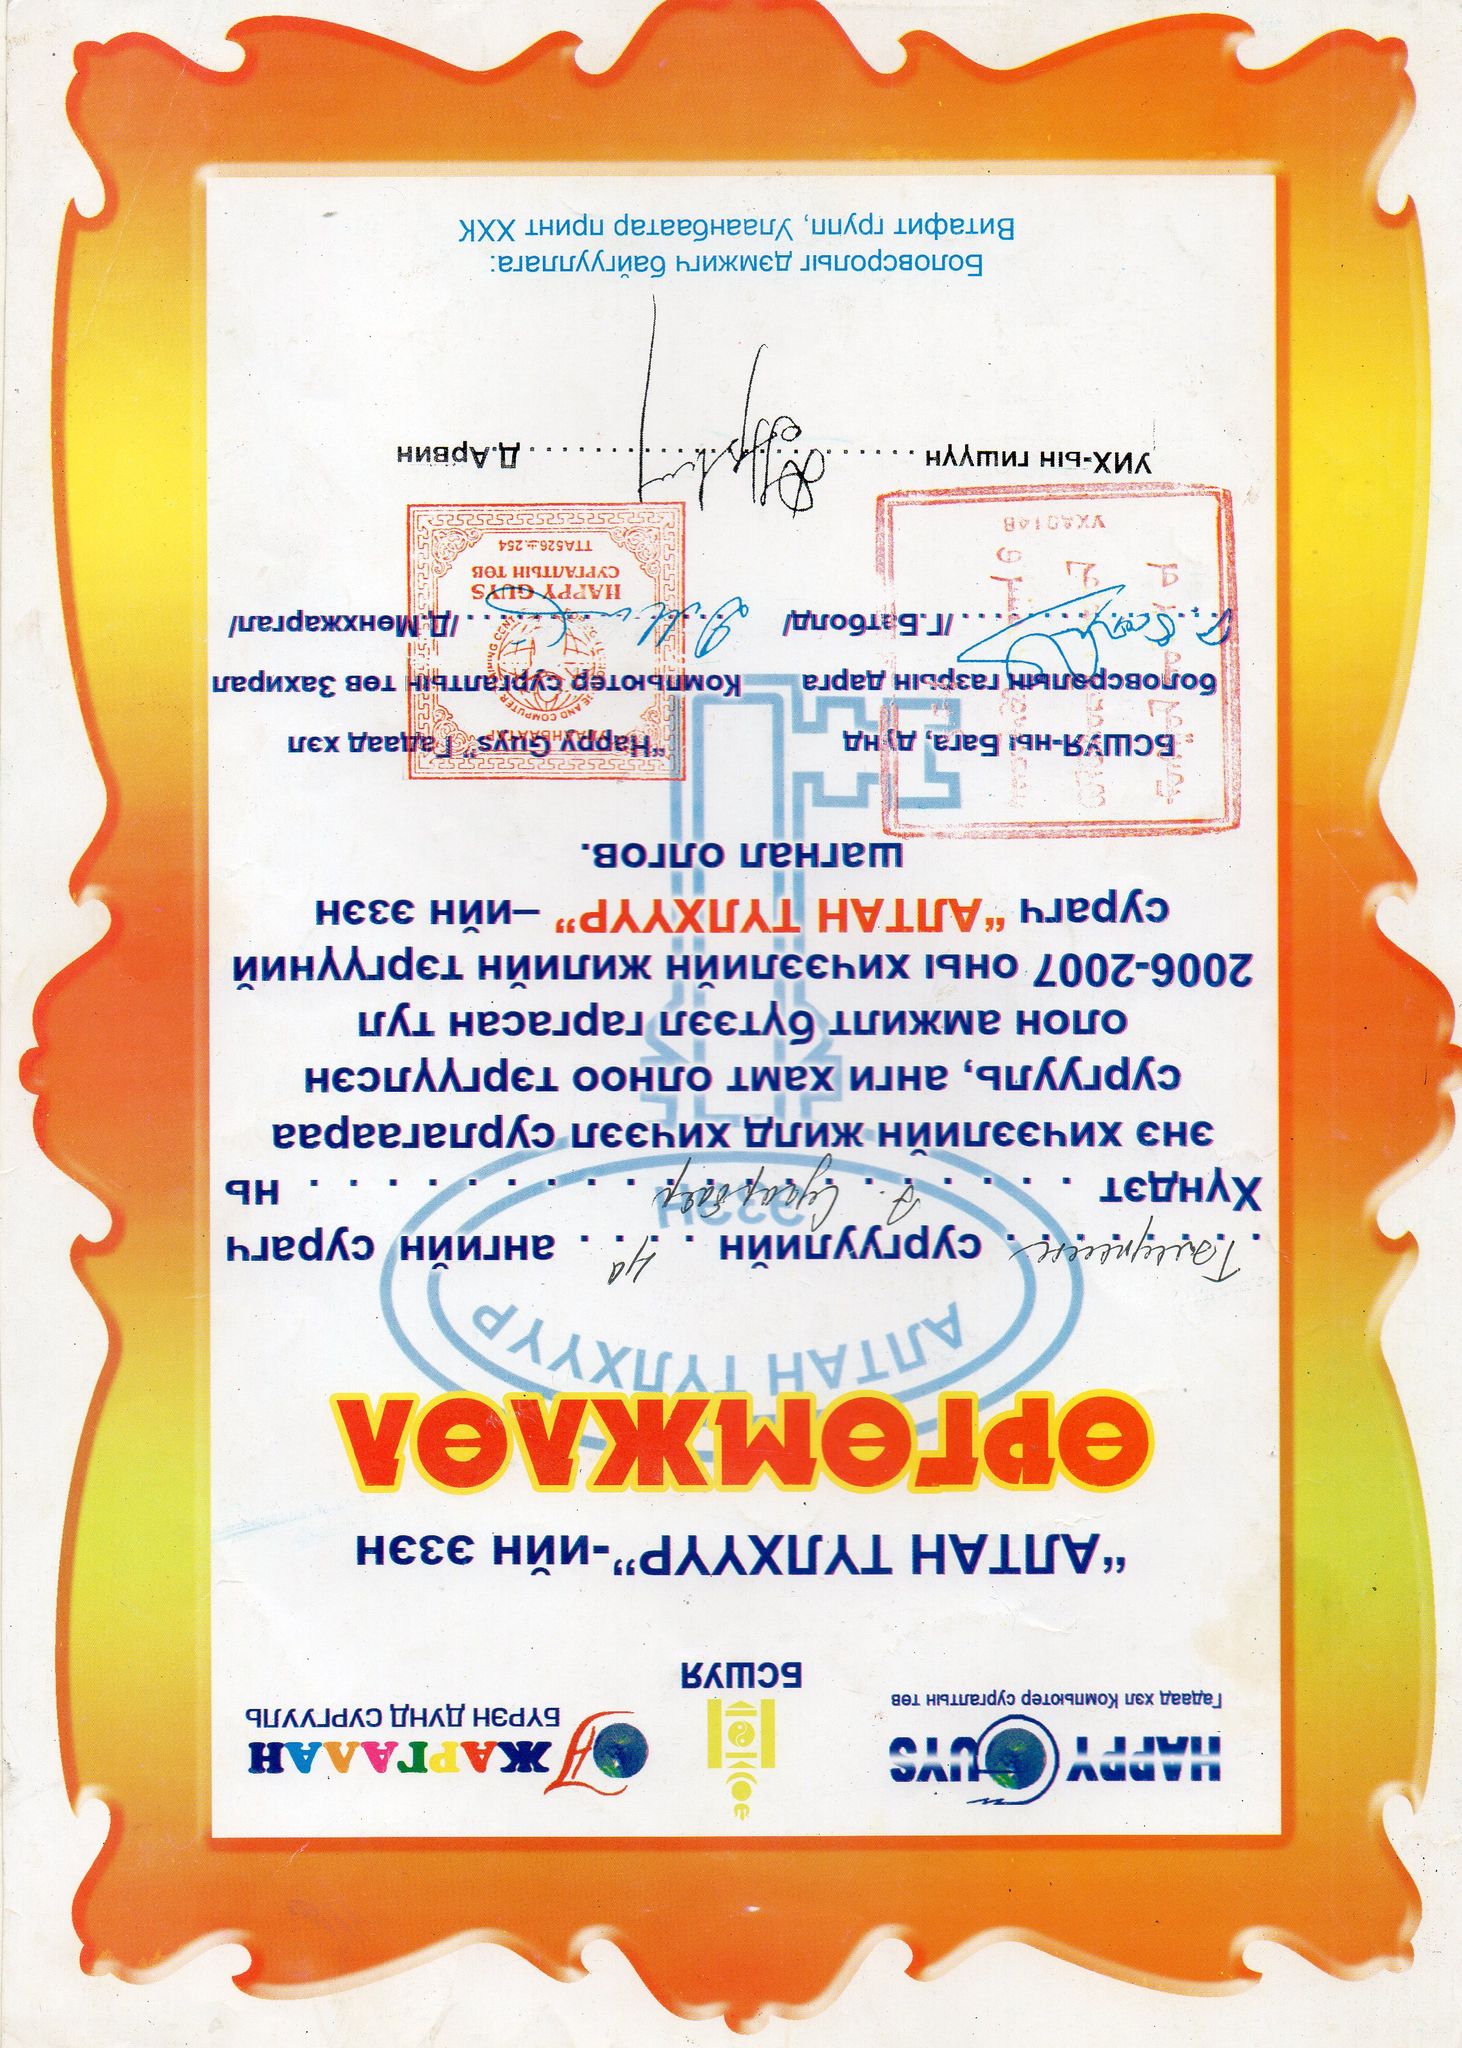 HAPPY GUYS
Гадаад хэл Компьютер сургалтын төв
БСШУЯ
ЖАРГАЛАН
БҮРЭН ДУНД СУРГУУЛЬ
“АЛТАН ТҮЛХҮҮР”-ийн эзэн
ӨРГӨМЖЛӨЛ
АЛТАН ТҮЛХҮҮР
ЭЗЭН
Тэмүжин сургуулийн 4а ангийн сурагч
Хүндэт . . . . . Э. Сугарбаяр . . . . . нь
энэ хичээлийн жилд хичээл сурлагаараа
сургууль, анги хамт олноо тэргүүлсэн
олон амжилт бүтээл гаргасан тул
2006-2007 оны хичээлийн жилийн тэргүүний
сурагч “АЛТАН ТҮЛХҮҮР” –ийн эзэн
шагнал олгов.
БСШУЯ-ны Бага, дунд
боловсролын газрын дарга
/Г.Батболд/
“Happy Guys” Гадаад хэл
Компьютер сургалтын төв Захирал
/Д.Мөнхжаргал/
УЛААНБААТАР
HAPPY GUYS
СУРГАЛТЫН ТӨВ
ТТА526 254
УХА014В
УИХ-ын гишүүн . . . . . . . . . . . . . . . . . . . . . . . . Д.Арвин
Боловсролыг дэмжигч байгууллага:
Витафит групп, Улаанбаатар принт ХХК